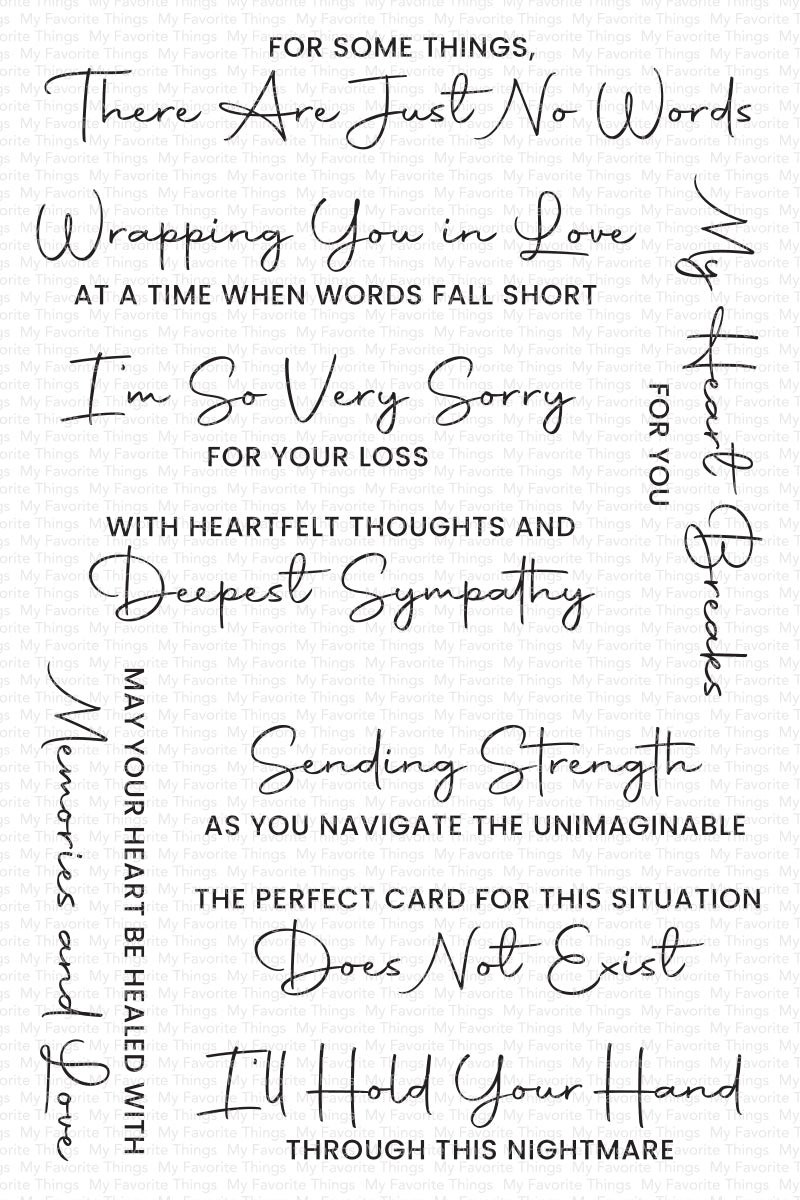 FOR SOME THINGS,
There Are Just No Words
Wrapping You in Love
AT A TIME WHEN WORDS FALL SHORT
My Heart Breaks
FOR YOU
I'm So Very Sorry
FOR YOUR LOSS
WITH HEARTFELT THOUGHTS AND
Deepest Sympathy
MAY YOUR HEART BE HEALED WITH
Memories and Love
Sending Strength
AS YOU NAVIGATE THE UNIMAGINABLE
THE PERFECT CARD FOR THIS SITUATION
Does Not Exist
I'll Hold Your Hand
THROUGH THIS NIGHTMARE
My Favorite Things